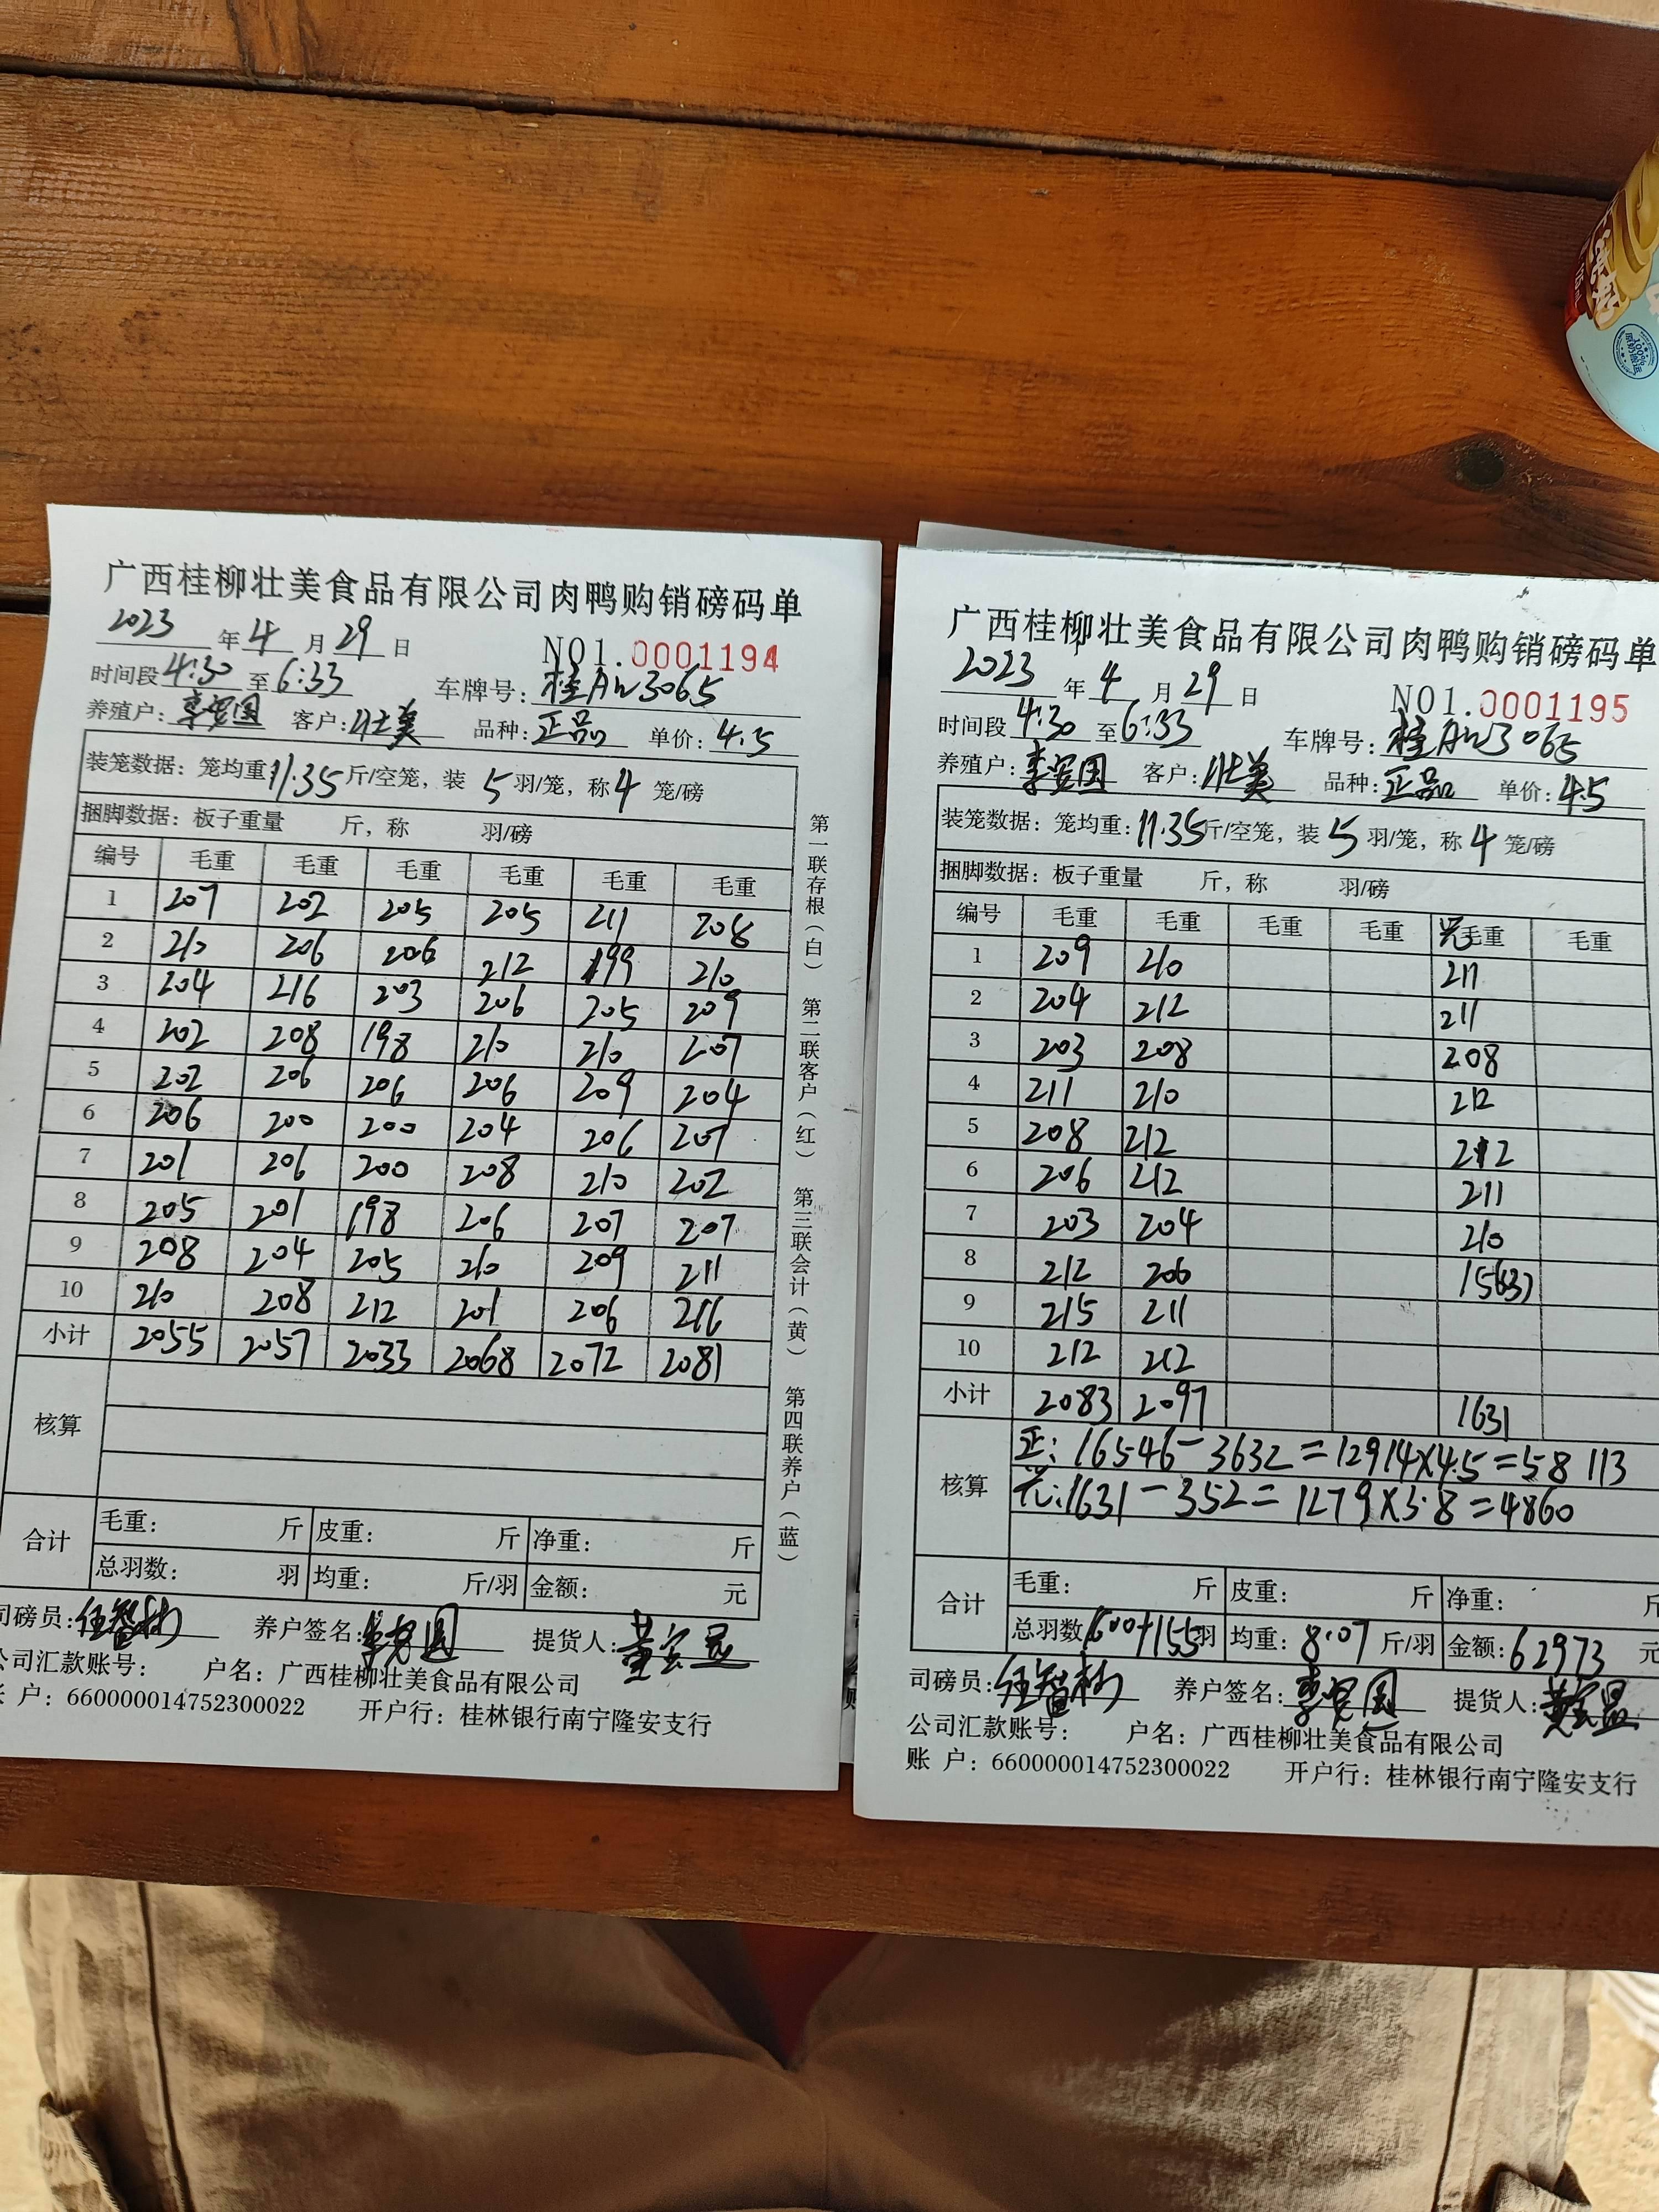 广西桂柳壮美食品有限公司肉鸭购销磅码单
2023 年 4 月 29 日 NO1.0001194
时间段 4:30 至 6:33 车牌号: 桂AW3065
养殖户: 国 客户: 壮美 品种: 正品 单价: 4.5
装笼数据: 笼均重 11.35 斤/空笼, 装 5 羽/笼, 称 4 笼/磅
捆脚数据: 板子重量 斤, 称 羽/磅
编号 毛重 毛重 毛重 毛重 毛重 毛重
1 207 202 205 205 211 208
2 210 206 206 212 199 210
3 204 216 203 206 205 209
4 202 208 198 210 210 207
5 202 206 206 206 209 204
6 206 200 200 204 206 207
7 201 206 200 208 210 202
8 205 201 198 206 207 207
9 208 204 205 210 209 211
10 210 208 212 201 206 216
小计 2055 2057 2033 2068 2072 2081
核算
合计
毛重: 斤 皮重: 斤 净重: 斤
总羽数: 羽 均重: 斤/羽 金额: 元
司磅员: 养户签名: 提货人:
公司汇款账号: 户名: 广西桂柳壮美食品有限公司
户: 660000014752300022 开户行: 桂林银行南宁隆安支行
第一联存根(白) 第二联客户(红) 第三联会计(黄) 第四联养户(蓝)
广西桂柳壮美食品有限公司肉鸭购销磅码单
2023 年 4 月 29 日 NO1.0001195
时间段 4:30 至 6:33 车牌号: 桂AW3065
养殖户: 国 客户: 壮美 品种: 正品 单价: 4.5
装笼数据: 笼均重: 11.35 斤/空笼, 装 5 羽/笼, 称 4 笼/磅
捆脚数据: 板子重量 斤, 称 羽/磅
编号 毛重 毛重 毛重 毛重 毛重 毛重
1 209 210 211
2 204 212 211
3 203 208 208
4 211 210 212
5 208 212 212
6 206 212 211
7 203 204 210
8 212 206 156(3)
9 215 211
10 212 212
小计 2083 2097 1631
核算
正: 16546-3632=12914×4.5=58113
花: 1631-352=1279×3.8=4860
合计
毛重: 斤 皮重: 斤 净重: 斤
总羽数 1600+155 羽 均重: 8.07 斤/羽 金额: 62973 元
司磅员: 养户签名: 提货人:
公司汇款账号: 户名: 广西桂柳壮美食品有限公司
账 户: 660000014752300022 开户行: 桂林银行南宁隆安支行